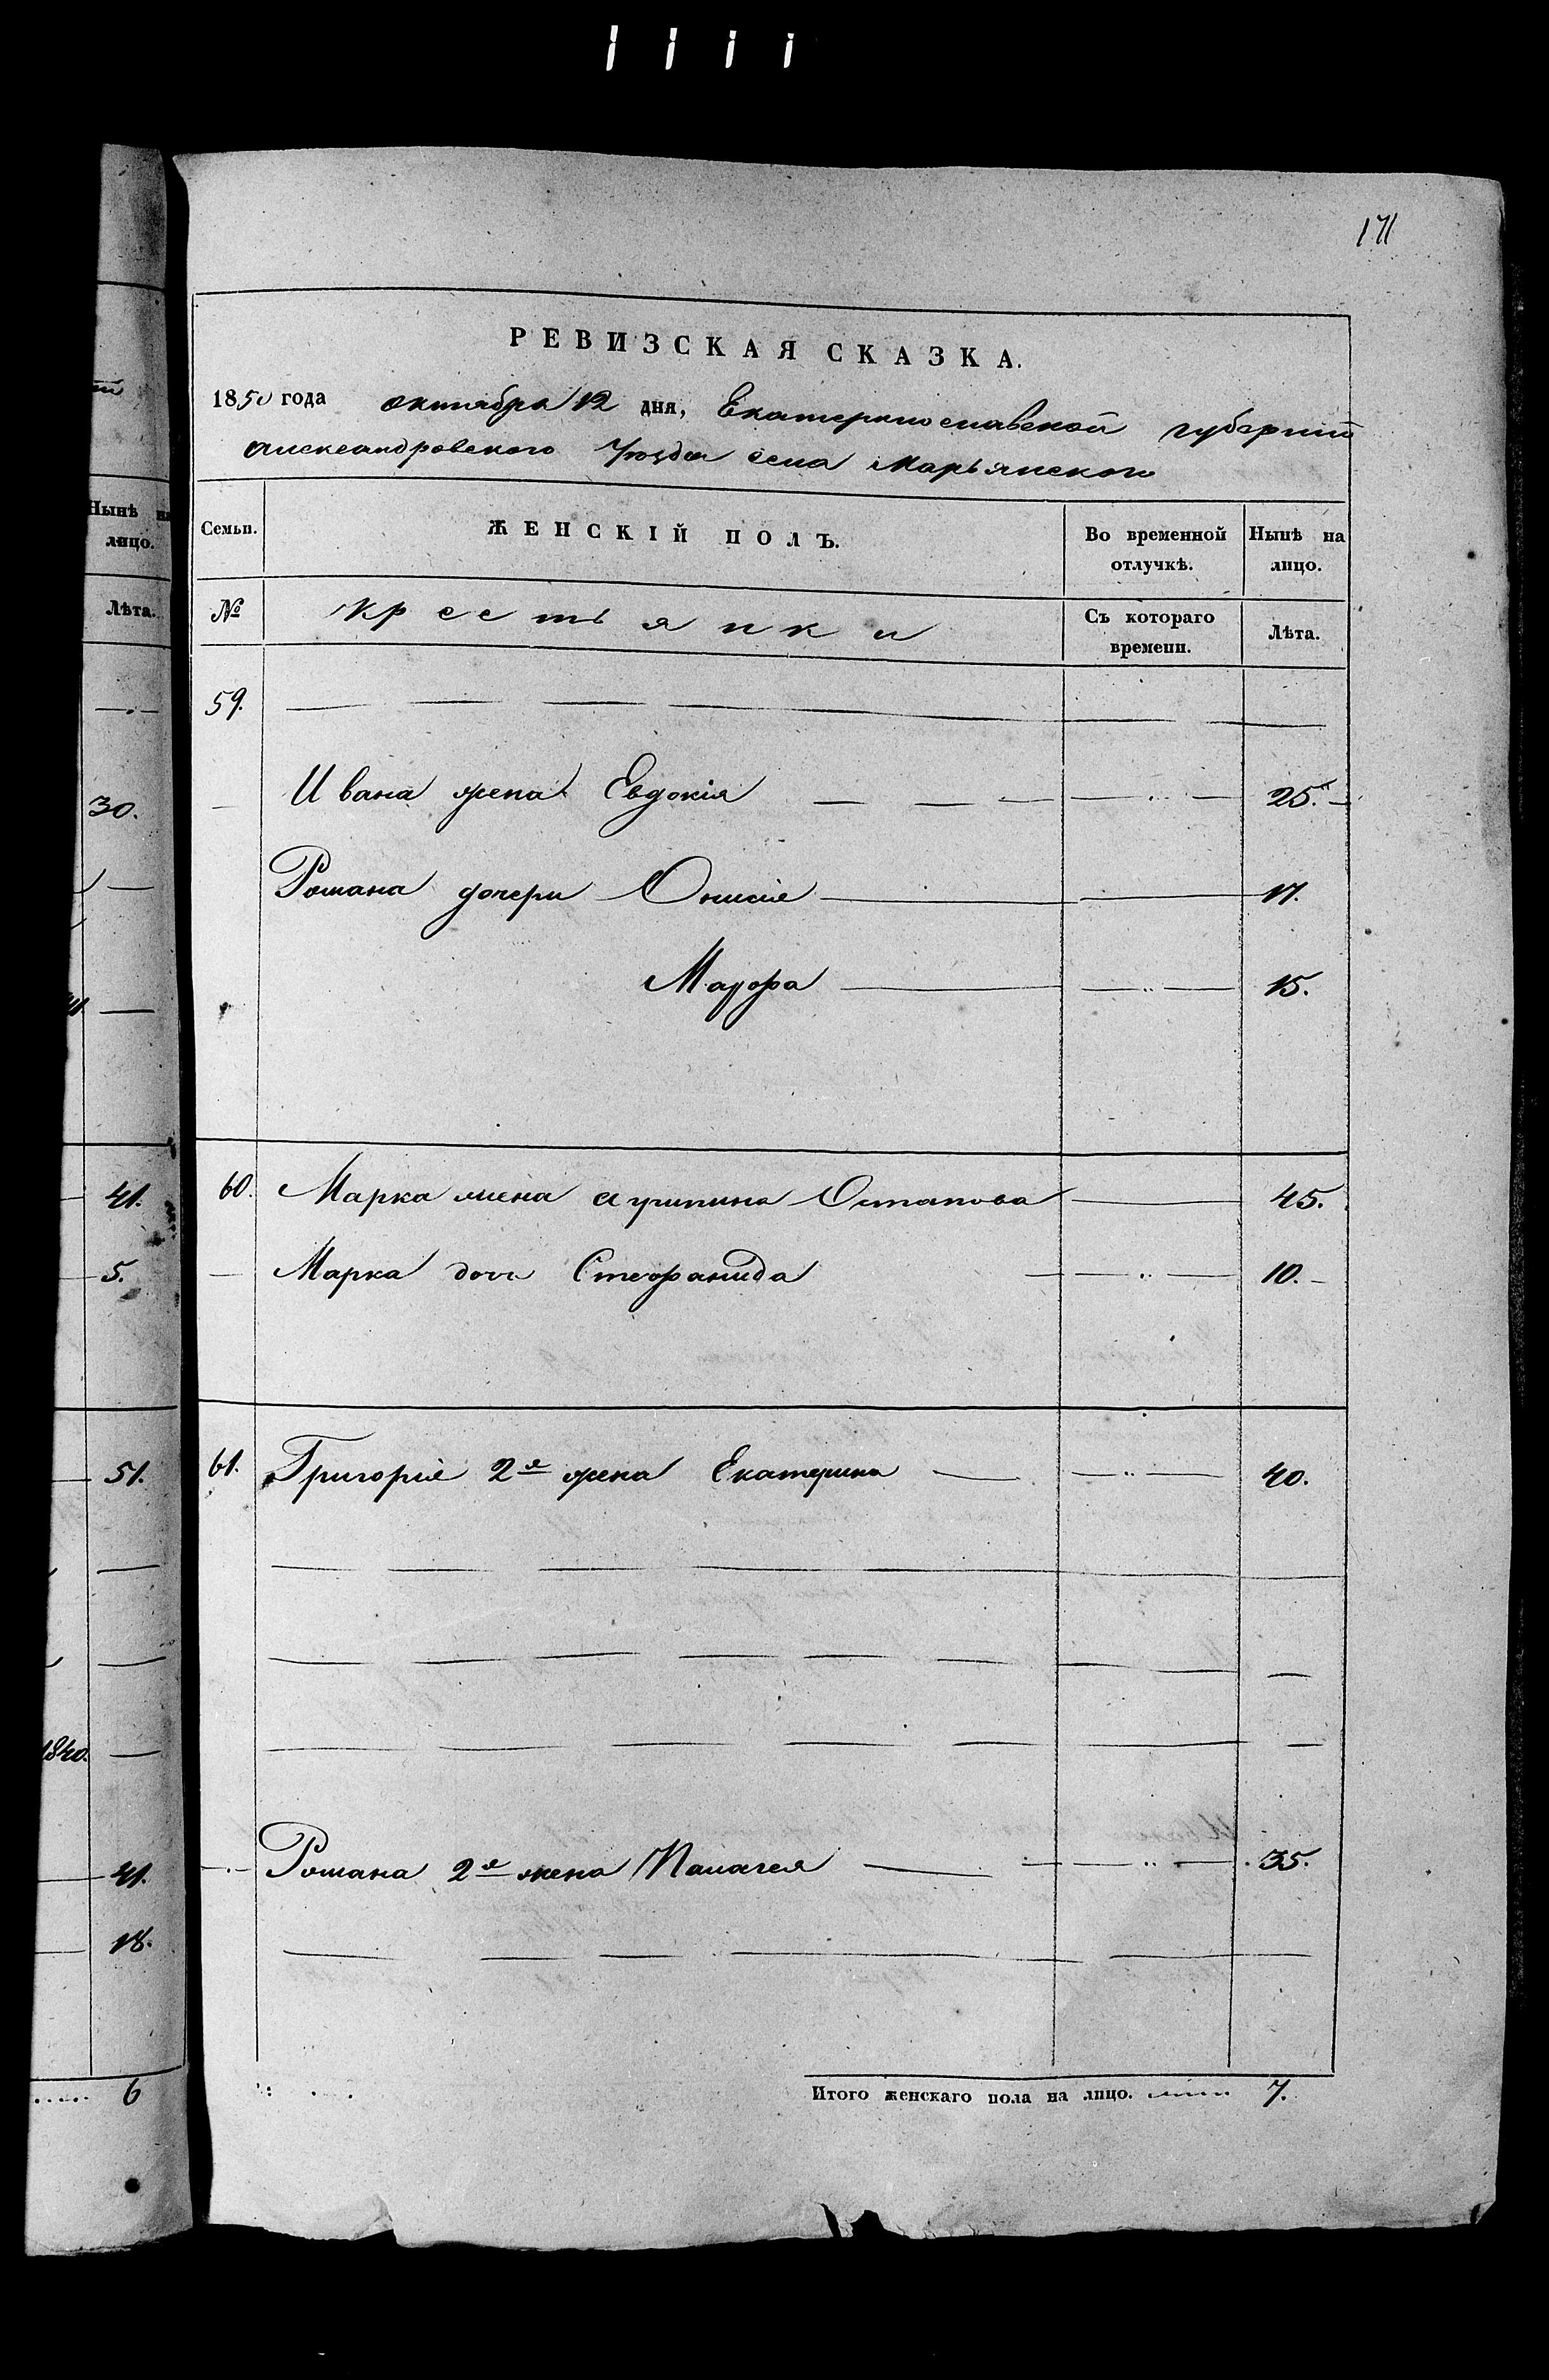 171
РЕВИЗСКАЯ СКАЗКА.
1850 года октября 12 дня, Екатеринославской губернии
Александровского Уезда села Марьянского
Нынѣ на лицо.
Лѣта.
30.
41.
5.
51.
1840.
41.
18.
6
Семьи. ЖЕНСКІЙ ПОЛЪ. Во временной отлучкѣ. Нынѣ на лицо.
№ Крестьянки Съ котораго времени. Лѣта.
59.
Ивана жена Евдокія 25.
Романа дочери Онисія 17.
15.
60. Марка жена Агрипина Остапова 45.
Марка дочь Стефанида 10.
61. Григорія 2я жена Екатерина 40.
Романа 2я жена Палагея 35.
Итого женскаго пола на лицо. 7.